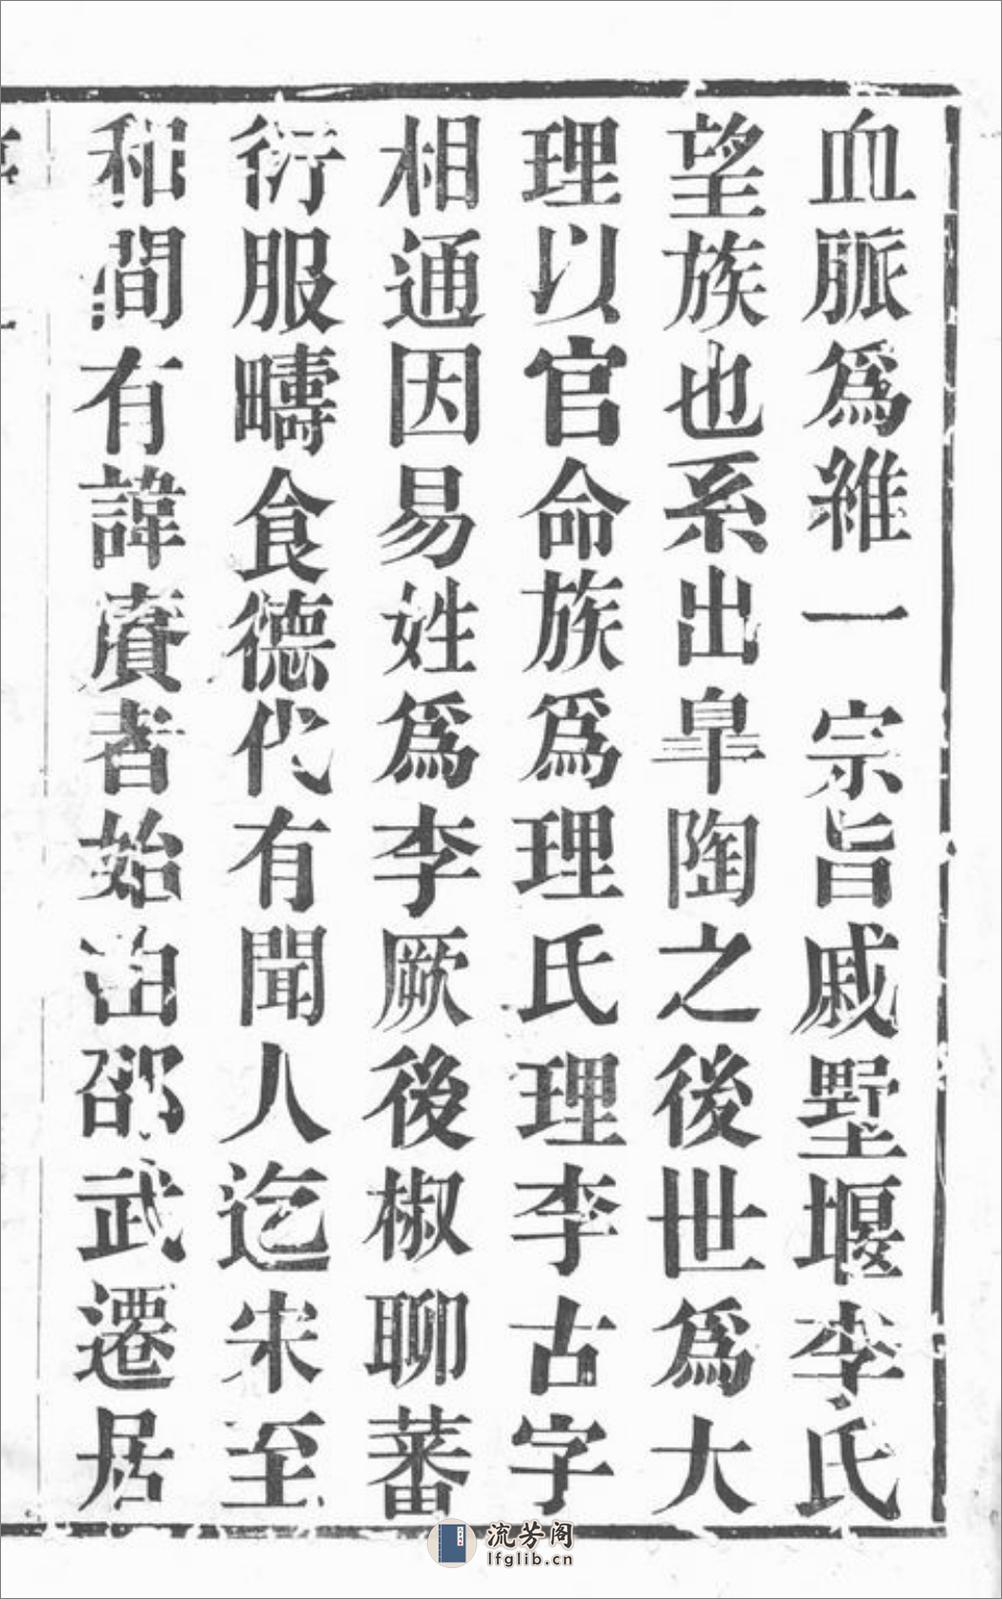 血脈爲維一宗旨戚墅堰李氏
望族也系出皐陶之後世爲大
理以官命族爲理氏理李古字
相通因易姓爲李厥後椒聊蕃
衍服疇食德代有聞人迄宋至
和間有諱賡者始由邵武遷居
流芳阁
lfglib.cn